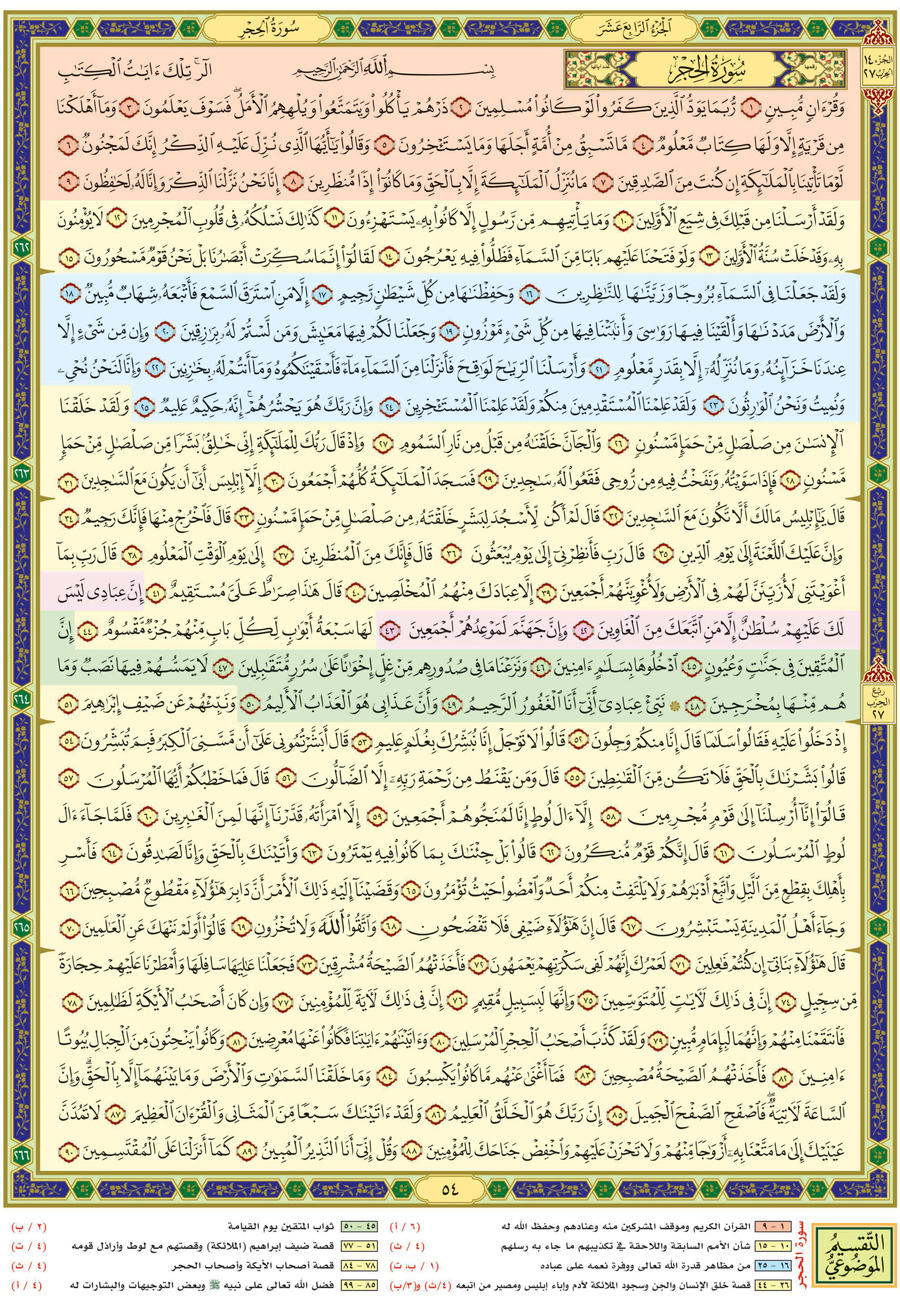 سُورَةُ الْحِجْرِ
الْجُزْءُ الرَّابِعَ عَشَرَ
الجُزء ١٤
الحِزب ٢٧
سُورَةُ الْحِجْرِ
بِسْمِ اللَّهِ الرَّحْمَٰنِ الرَّحِيمِ
الٓرۚ تِلْكَ ءَايَٰتُ ٱلْكِتَٰبِ
وَقُرْءَانٍ مُّبِينٍ ١ رُّبَمَا يَوَدُّ ٱلَّذِينَ كَفَرُوا۟ لَوْ كَانُوا۟ مُسْلِمِينَ ٢ ذَرْهُمْ يَأْكُلُوا۟ وَيَتَمَتَّعُوا۟ وَيُلْهِهِمُ ٱلْأَمَلُۖ فَسَوْفَ يَعْلَمُونَ ٣ وَمَآ أَهْلَكْنَا
مِن قَرْيَةٍ إِلَّا وَلَهَا كِتَابٌ مَّعْلُومٌ ٤ مَّا تَسْبِقُ مِنْ أُمَّةٍ أَجَلَهَا وَمَا يَسْتَـْٔخِرُونَ ٥ وَقَالُوا۟ يَٰٓأَيُّهَا ٱلَّذِى نُزِّلَ عَلَيْهِ ٱلذِّكْرُ إِنَّكَ لَمَجْنُونٌ ٦
لَّوْمَا تَأْتِينَا بِٱلْمَلَٰٓئِكَةِ إِن كُنتَ مِنَ ٱلصَّٰدِقِينَ ٧ مَا نُنَزِّلُ ٱلْمَلَٰٓئِكَةَ إِلَّا بِٱلْحَقِّ وَمَا كَانُوٓا۟ إِذًا مُّنظَرِينَ ٨ إِنَّا نَحْنُ نَزَّلْنَا ٱلذِّكْرَ وَإِنَّا لَهُۥ لَحَٰفِظُونَ ٩
وَلَقَدْ أَرْسَلْنَا مِن قَبْلِكَ فِى شِيَعِ ٱلْأَوَّلِينَ ١٠ وَمَا يَأْتِيهِم مِّن رَّسُولٍ إِلَّا كَانُوا۟ بِهِۦ يَسْتَهْزِءُونَ ١١ كَذَٰلِكَ نَسْلُكُهُۥ فِى قُلُوبِ ٱلْمُجْرِمِينَ ١٢ لَا يُؤْمِنُونَ
بِهِۦ وَقَدْ خَلَتْ سُنَّةُ ٱلْأَوَّلِينَ ١٣ وَلَوْ فَتَحْنَا عَلَيْهِم بَابًا مِّنَ ٱلسَّمَآءِ فَظَلُّوا۟ فِيهِ يَعْرُجُونَ ١٤ لَقَالُوٓا۟ إِنَّمَا سُكِّرَتْ أَبْصَٰرُنَا بَلْ نَحْنُ قَوْمٌ مَّسْحُورُونَ ١٥
وَلَقَدْ جَعَلْنَا فِى ٱلسَّمَآءِ بُرُوجًا وَزَيَّنَّٰهَا لِلنَّٰظِرِينَ ١٦ وَحَفِظْنَٰهَا مِن كُلِّ شَيْطَٰنٍ رَّجِيمٍ ١٧ إِلَّا مَنِ ٱسْتَرَقَ ٱلسَّمْعَ فَأَتْبَعَهُۥ شِهَابٌ مُّبِينٌ ١٨
وَٱلْأَرْضَ مَدَدْنَٰهَا وَأَلْقَيْنَا فِيهَا رَوَٰسِىَ وَأَنۢبَتْنَا فِيهَا مِن كُلِّ شَىْءٍ مَّوْزُونٍ ١٩ وَجَعَلْنَا لَكُمْ فِيهَا مَعَٰيِشَ وَمَن لَّسْتُمْ لَهُۥ بِرَٰزِقِينَ ٢٠ وَإِن مِّن شَىْءٍ إِلَّا
عِندَنَا خَزَآئِنُهُۥ وَمَا نُنَزِّلُهُۥٓ إِلَّا بِقَدَرٍ مَّعْلُومٍ ٢١ وَأَرْسَلْنَا ٱلرِّيَٰحَ لَوَٰقِحَ فَأَنزَلْنَا مِنَ ٱلسَّمَآءِ مَآءً فَأَسْقَيْنَٰكُمُوهُ وَمَآ أَنتُمْ لَهُۥ بِخَٰزِنِينَ ٢٢ وَإِنَّا لَنَحْنُ نُحْىِۦ
وَنُمِيتُ وَنَحْنُ ٱلْوَٰرِثُونَ ٢٣ وَلَقَدْ عَلِمْنَا ٱلْمُسْتَقْدِمِينَ مِنكُمْ وَلَقَدْ عَلِمْنَا ٱلْمُسْتَـْٔخِرِينَ ٢٤ وَإِنَّ رَبَّكَ هُوَ يَحْشُرُهُمْۚ إِنَّهُۥ حَكِيمٌ عَلِيمٌ ٢٥ وَلَقَدْ خَلَقْنَا
ٱلْإِنسَٰنَ مِن صَلْصَٰلٍ مِّنْ حَمَإٍ مَّسْنُونٍ ٢٦ وَٱلْجَآنَّ خَلَقْنَٰهُ مِن قَبْلُ مِن نَّارِ ٱلسَّمُومِ ٢٧ وَإِذْ قَالَ رَبُّكَ لِلْمَلَٰٓئِكَةِ إِنِّى خَٰلِقٌۢ بَشَرًا مِّن صَلْصَٰلٍ مِّنْ حَمَإٍ
مَّسْنُونٍ ٢٨ فَإِذَا سَوَّيْتُهُۥ وَنَفَخْتُ فِيهِ مِن رُّوحِى فَقَعُوا۟ لَهُۥ سَٰجِدِينَ ٢٩ فَسَجَدَ ٱلْمَلَٰٓئِكَةُ كُلُّهُمْ أَجْمَعُونَ ٣٠ إِلَّآ إِبْلِيسَ أَبَىٰٓ أَن يَكُونَ مَعَ ٱلسَّٰجِدِينَ ٣١
قَالَ يَٰٓإِبْلِيسُ مَا لَكَ أَلَّا تَكُونَ مَعَ ٱلسَّٰجِدِينَ ٣٢ قَالَ لَمْ أَكُن لِّأَسْجُدَ لِبَشَرٍ خَلَقْتَهُۥ مِن صَلْصَٰلٍ مِّنْ حَمَإٍ مَّسْنُونٍ ٣٣ قَالَ فَٱخْرُجْ مِنْهَا فَإِنَّكَ رَجِيمٌ ٣٤
وَإِنَّ عَلَيْكَ ٱللَّعْنَةَ إِلَىٰ يَوْمِ ٱلدِّينِ ٣٥ قَالَ رَبِّ فَأَنظِرْنِىٓ إِلَىٰ يَوْمِ يُبْعَثُونَ ٣٦ قَالَ فَإِنَّكَ مِنَ ٱلْمُنظَرِينَ ٣٧ إِلَىٰ يَوْمِ ٱلْوَقْتِ ٱلْمَعْلُومِ ٣٨ قَالَ رَبِّ بِمَآ
أَغْوَيْتَنِى لَأُزَيِّنَنَّ لَهُمْ فِى ٱلْأَرْضِ وَلَأُغْوِيَنَّهُمْ أَجْمَعِينَ ٣٩ إِلَّا عِبَادَكَ مِنْهُمُ ٱلْمُخْلَصِينَ ٤٠ قَالَ هَٰذَا صِرَٰطٌ عَلَىَّ مُسْتَقِيمٌ ٤١ إِنَّ عِبَادِى لَيْسَ
لَكَ عَلَيْهِمْ سُلْطَٰنٌ إِلَّا مَنِ ٱتَّبَعَكَ مِنَ ٱلْغَاوِينَ ٤٢ وَإِنَّ جَهَنَّمَ لَمَوْعِدُهُمْ أَجْمَعِينَ ٤٣ لَهَا سَبْعَةُ أَبْوَٰبٍ لِّكُلِّ بَابٍ مِّنْهُمْ جُزْءٌ مَّقْسُومٌ ٤٤ إِنَّ
ٱلْمُتَّقِينَ فِى جَنَّٰتٍ وَعُيُونٍ ٤٥ ٱدْخُلُوهَا بِسَلَٰمٍ ءَامِنِينَ ٤٦ وَنَزَعْنَا مَا فِى صُدُورِهِم مِّنْ غِلٍّ إِخْوَٰنًا عَلَىٰ سُرُرٍ مُّتَقَٰبِلِينَ ٤٧ لَا يَمَسُّهُمْ فِيهَا نَصَبٌ وَمَا
هُم مِّنْهَا بِمُخْرَجِينَ ٤٨ ۞ نَبِّئْ عِبَادِىٓ أَنِّىٓ أَنَا ٱلْغَفُورُ ٱلرَّحِيمُ ٤٩ وَأَنَّ عَذَابِى هُوَ ٱلْعَذَابُ ٱلْأَلِيمُ ٥٠ وَنَبِّئْهُمْ عَن ضَيْفِ إِبْرَٰهِيمَ ٥١
إِذْ دَخَلُوا۟ عَلَيْهِ فَقَالُوا۟ سَلَٰمًا قَالَ إِنَّا مِنكُمْ وَجِلُونَ ٥٢ قَالُوا۟ لَا تَوْجَلْ إِنَّا نُبَشِّرُكَ بِغُلَٰمٍ عَلِيمٍ ٥٣ قَالَ أَبَشَّرْتُمُونِى عَلَىٰٓ أَن مَّسَّنِىَ ٱلْكِبَرُ فَبِمَ تُبَشِّرُونَ ٥٤
قَالُوا۟ بَشَّرْنَٰكَ بِٱلْحَقِّ فَلَا تَكُن مِّنَ ٱلْقَٰنِطِينَ ٥٥ قَالَ وَمَن يَقْنَطُ مِن رَّحْمَةِ رَبِّهِۦٓ إِلَّا ٱلضَّآلُّونَ ٥٦ قَالَ فَمَا خَطْبُكُمْ أَيُّهَا ٱلْمُرْسَلُونَ ٥٧
قَالُوٓا۟ إِنَّآ أُرْسِلْنَآ إِلَىٰ قَوْمٍ مُّجْرِمِينَ ٥٨ إِلَّآ ءَالَ لُوطٍ إِنَّا لَمُنَجُّوهُمْ أَجْمَعِينَ ٥٩ إِلَّا ٱمْرَأَتَهُۥ قَدَّرْنَآ إِنَّهَا لَمِنَ ٱلْغَٰبِرِينَ ٦٠ فَلَمَّا جَآءَ ءَالَ
لُوطٍ ٱلْمُرْسَلُونَ ٦١ قَالَ إِنَّكُمْ قَوْمٌ مُّنكَرُونَ ٦٢ قَالُوا۟ بَلْ جِئْنَٰكَ بِمَا كَانُوا۟ فِيهِ يَمْتَرُونَ ٦٣ وَأَتَيْنَٰكَ بِٱلْحَقِّ وَإِنَّا لَصَٰدِقُونَ ٦٤ فَأَسْرِ
بِأَهْلِكَ بِقِطْعٍ مِّنَ ٱلَّيْلِ وَٱتَّبِعْ أَدْبَٰرَهُمْ وَلَا يَلْتَفِتْ مِنكُمْ أَحَدٌ وَٱمْضُوا۟ حَيْثُ تُؤْمَرُونَ ٦٥ وَقَضَيْنَآ إِلَيْهِ ذَٰلِكَ ٱلْأَمْرَ أَنَّ دَابِرَ هَٰٓؤُلَآءِ مَقْطُوعٌ مُّصْبِحِينَ ٦٦
وَجَآءَ أَهْلُ ٱلْمَدِينَةِ يَسْتَبْشِرُونَ ٦٧ قَالَ إِنَّ هَٰٓؤُلَآءِ ضَيْفِى فَلَا تَفْضَحُونِ ٦٨ وَٱتَّقُوا۟ ٱللَّهَ وَلَا تُخْزُونِ ٦٩ قَالُوٓا۟ أَوَلَمْ نَنْهَكَ عَنِ ٱلْعَٰلَمِينَ ٧٠
قَالَ هَٰٓؤُلَآءِ بَنَاتِىٓ إِن كُنتُمْ فَٰعِلِينَ ٧١ لَعَمْرُكَ إِنَّهُمْ لَفِى سَكْرَتِهِمْ يَعْمَهُونَ ٧٢ فَأَخَذَتْهُمُ ٱلصَّيْحَةُ مُشْرِقِينَ ٧٣ فَجَعَلْنَا عَٰلِيَهَا سَافِلَهَا وَأَمْطَرْنَا عَلَيْهِمْ حِجَارَةً
مِّن سِجِّيلٍ ٧٤ إِنَّ فِى ذَٰلِكَ لَءَايَٰتٍ لِّلْمُتَوَسِّمِينَ ٧٥ وَإِنَّهَا لَبِسَبِيلٍ مُّقِيمٍ ٧٦ إِنَّ فِى ذَٰلِكَ لَءَايَةً لِّلْمُؤْمِنِينَ ٧٧ وَإِن كَانَ أَصْحَٰبُ ٱلْأَيْكَةِ لَظَٰلِمِينَ ٧٨
فَٱنتَقَمْنَا مِنْهُمْ وَإِنَّهُمَا لَبِإِمَامٍ مُّبِينٍ ٧٩ وَلَقَدْ كَذَّبَ أَصْحَٰبُ ٱلْحِجْرِ ٱلْمُرْسَلِينَ ٨٠ وَءَاتَيْنَٰهُمْ ءَايَٰتِنَا فَكَانُوا۟ عَنْهَا مُعْرِضِينَ ٨١ وَكَانُوا۟ يَنْحِتُونَ مِنَ ٱلْجِبَالِ بُيُوتًا
ءَامِنِينَ ٨٢ فَأَخَذَتْهُمُ ٱلصَّيْحَةُ مُصْبِحِينَ ٨٣ فَمَآ أَغْنَىٰ عَنْهُم مَّا كَانُوا۟ يَكْسِبُونَ ٨٤ وَمَا خَلَقْنَا ٱلسَّمَٰوَٰتِ وَٱلْأَرْضَ وَمَا بَيْنَهُمَآ إِلَّا بِٱلْحَقِّۗ وَإِنَّ
ٱلسَّاعَةَ لَءَاتِيَةٌۖ فَٱصْفَحِ ٱلصَّفْحَ ٱلْجَمِيلَ ٨٥ إِنَّ رَبَّكَ هُوَ ٱلْخَلَّٰقُ ٱلْعَلِيمُ ٨٦ وَلَقَدْ ءَاتَيْنَٰكَ سَبْعًا مِّنَ ٱلْمَثَانِى وَٱلْقُرْءَانَ ٱلْعَظِيمَ ٨٧ لَا تَمُدَّنَّ
عَيْنَيْكَ إِلَىٰ مَا مَتَّعْنَا بِهِۦٓ أَزْوَٰجًا مِّنْهُمْ وَلَا تَحْزَنْ عَلَيْهِمْ وَٱخْفِضْ جَنَاحَكَ لِلْمُؤْمِنِينَ ٨٨ وَقُلْ إِنِّىٓ أَنَا ٱلنَّذِيرُ ٱلْمُبِينُ ٨٩ كَمَآ أَنزَلْنَا عَلَى ٱلْمُقْتَسِمِينَ ٩٠
٢٦٢
٢٦٣
٢٦٤
٢٦٥
٢٦٦
ربع الحزب ٢٧
٥٤
التَّقْسِيمُ المَوْضُوعِيُّ
سورة الحجر
١ - ٩ القرآن الكريم وموقف المشركين منه وعنادهم وحفظ الله له (٦ / أ)
١٠ - ١٥ شأن الأمم السابقة واللاحقة في تكذيبهم ما جاء به رسلهم (٤ / ث)
١٦ - ٢٥ من مظاهر قدرة الله تعالى ووفرة نعمه على عباده (١ / ب، ت)
٢٦ - ٤٤ قصة خلق الإنسان والجن وسجود الملائكة لآدم وإباء إبليس ومصير من اتبعه (٤/ث) و(٣/ب)
٤٥ - ٥٠ ثواب المتقين يوم القيامة (٢ / ب)
٥١ - ٧٧ قصة ضيف إبراهيم (الملائكة) وقصتهم مع لوط وأراذل قومه (٤ / ت)
٧٨ - ٨٤ قصة أصحاب الأيكة وأصحاب الحجر (٤ / ث)
٨٥ - ٩٩ فضل الله تعالى على نبيه ﷺ وبعض التوجيهات والبشارات له (٤ / أ)